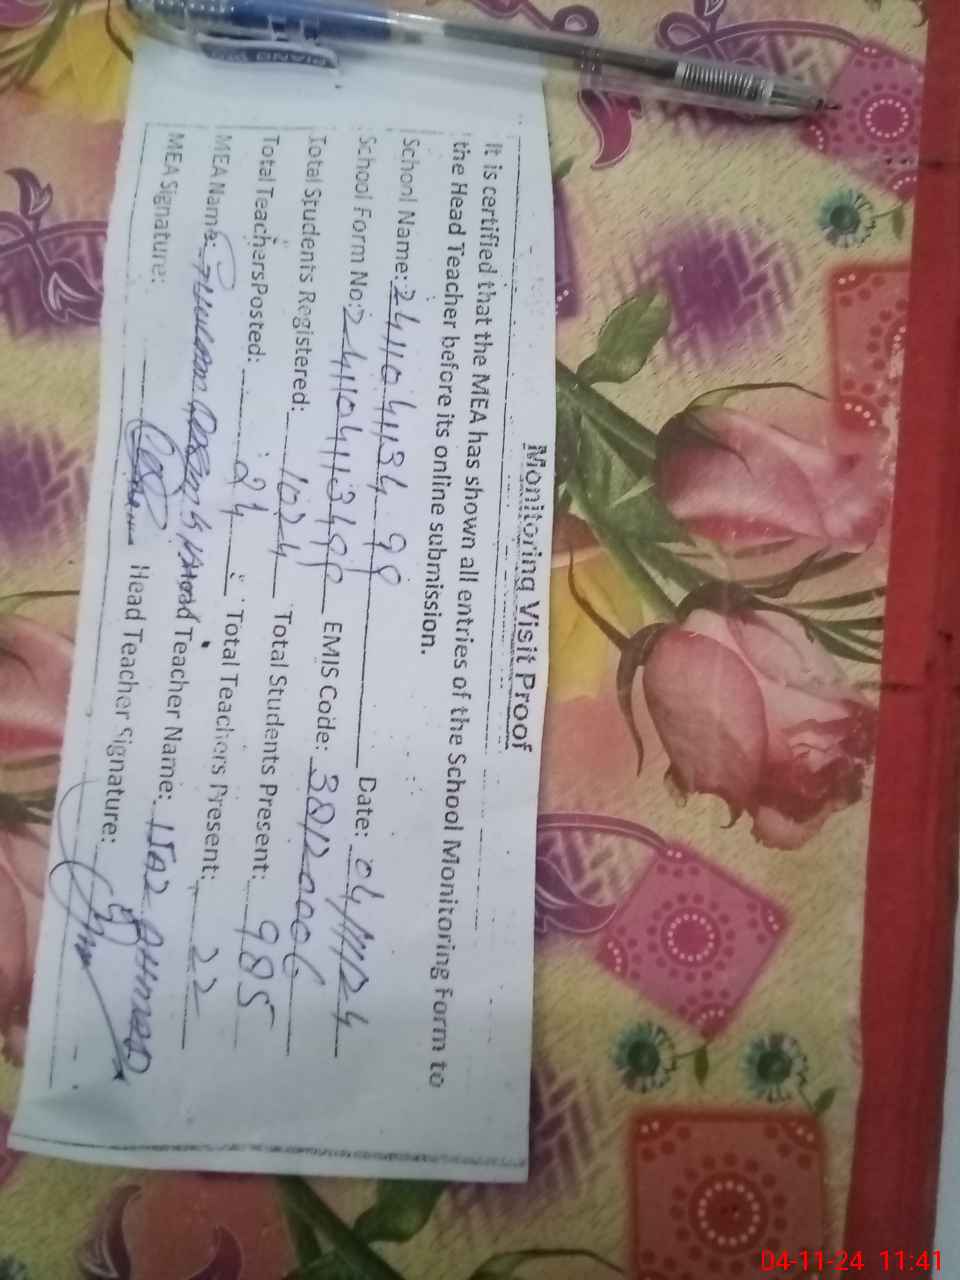 Monitoring Visit Proof
It is certified that the MEA has shown all entries of the School Monitoring Form to
the Head Teacher before its online submission.
School Name: 2411041134 99 Date: 04/11/24
School Form No: 241104113499 EMIS Code: 38120006
Total Students Registered: 1024 Total Students Present: 985
Total Teachers Posted: 24 Total Teachers Present: 22
MEA Name: Teacher Name: IJAZ AHMAD
MEA Signature: Head Teacher Signature:
PIANO
04-11-24 11:41